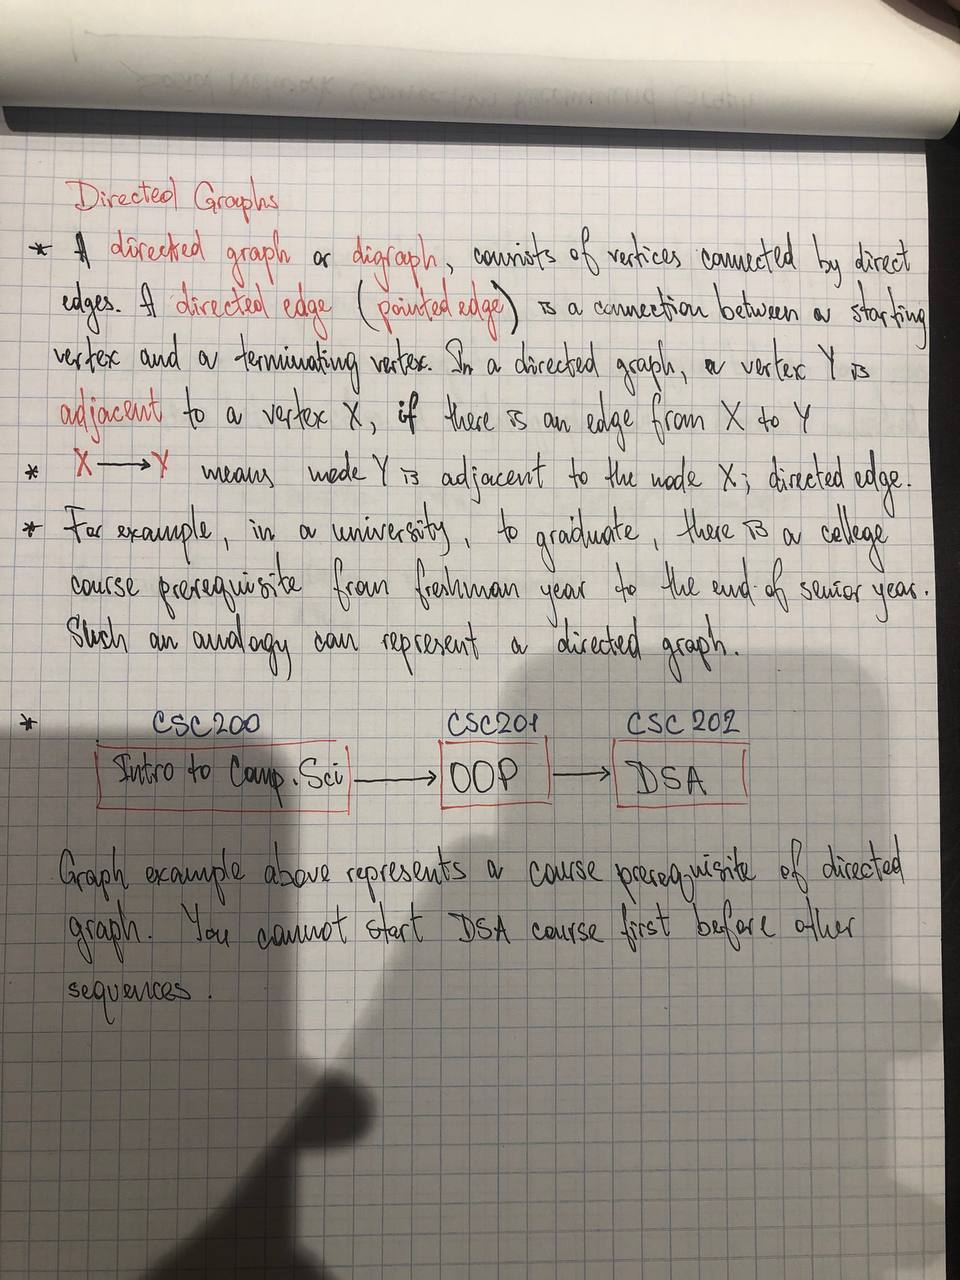 Directed Graphs
* A directed graph or digraph, consists of vertices connected by direct
edges. A directed edge (pointed edge) is a connection between a starting
vertex and a terminating vertex. In a directed graph, a vertex Y is
adjacent to a vertex X, if there is an edge from X to Y
* X → Y means node Y is adjacent to the node X; directed edge.
* For example, in a university, to graduate, there is a college
course prerequisite from freshman year to the end of senior year.
Such an analogy can represent a directed graph.
* CSC200 CSC201 CSC202
Intro to Comp. Sci → OOP → DSA
Graph example above represents a course prerequisite of directed
graph. You cannot start DSA course first before other
sequences.